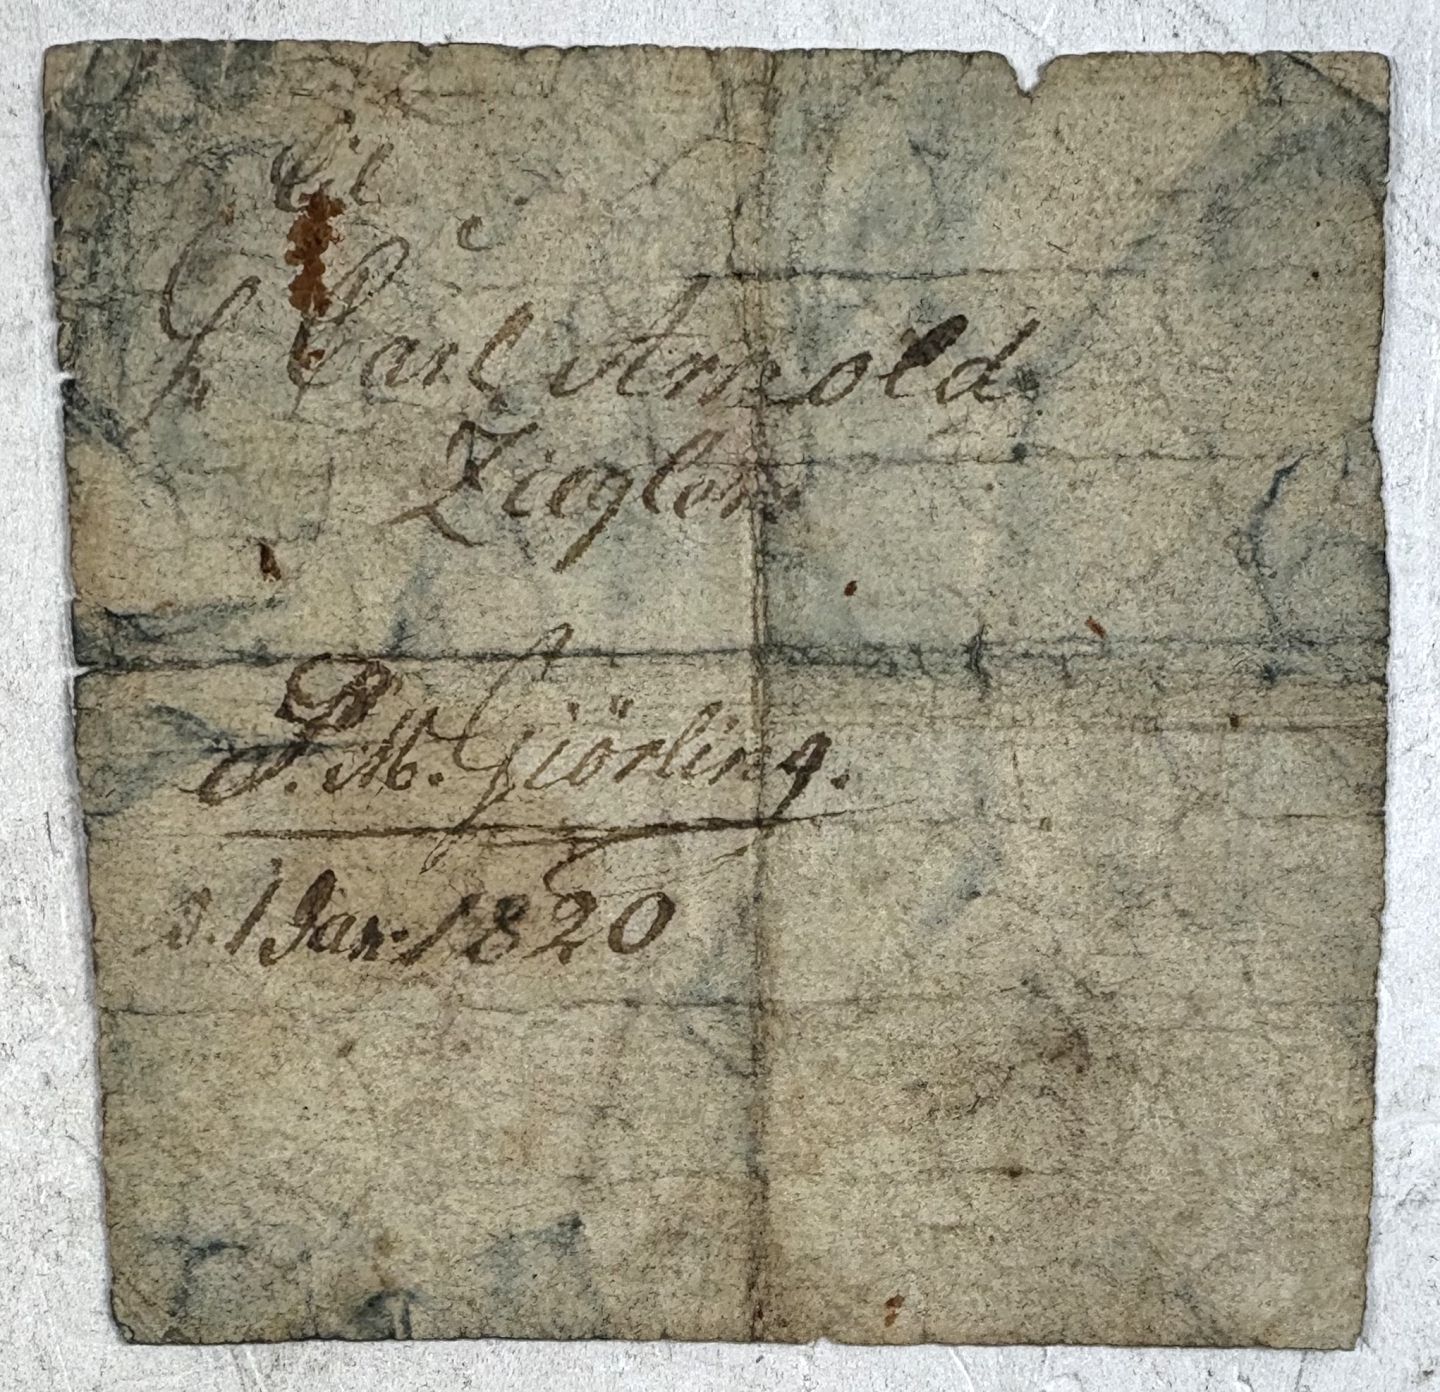 Til
Hr Carl Arnold
Ziegler
P. M. Giörling.
d. 1 Jan: 1820